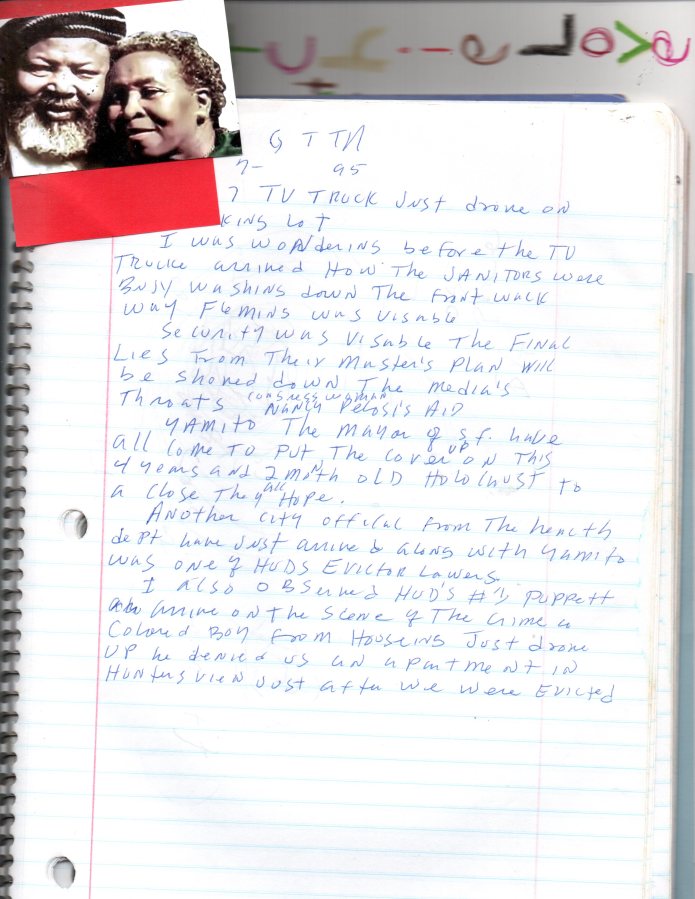 Love
G T TM
7- 95
7 TV TRUCK Just drove on
KING LOT
I was wondering before the TV
Trucke arrived How The JANITORS were
Busy washing down The Front walk
way Fleming was visable
Security was visable The Final
Lies From Their Master's Plan will
be shoved down The media's
Throats congress woman Nancy Pelosi's AID
YAMITO The Mayor of S.F. have
all come To Put The cover up on This
4 years and 2 month OLD Holochust to
a close They all Hope.
Another city offical from The health
dept have Just arrived along with Yamito
was one of HUDS Evictor Lawers.
I also observed HUD's #1 Puppett
arrive on The Scene of The crime a
Colored Boy From Houseing Just drove
UP he denied us an apartment in
Huntersview Just after we were Evicted